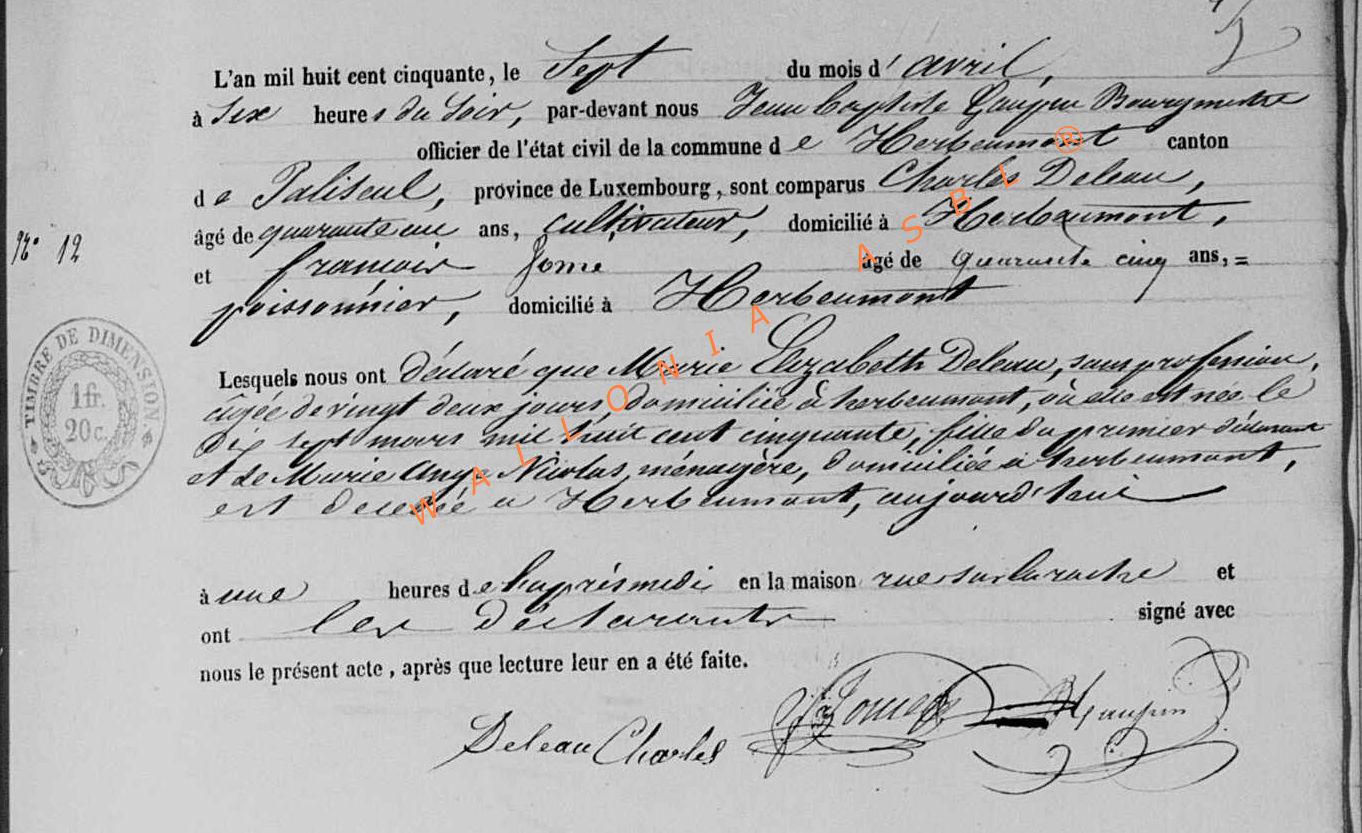 L'an mil huit cent cinquante, le Sept du mois d'avril,
à Six heures du Soir, par-devant nous Jean Baptiste Bourgmestre
officier de l'état civil de la commune de Herbeumont canton
de Paliseul, province de Luxembourg, sont comparus Charles Deleau,
âgé de quarante un ans, cultivateur, domicilié à Herbeumont,
N° 12
et françois Jome âgé de quarante cinq ans, =
poissonnier, domicilié à Herbeumont
Lesquels nous ont déclaré que Marie Elizabeth Deleau, sans profession,
âgée de vingt deux jours, domiciliée à herbeumont, où elle est née le
dix sept mars mil huit cent cinquante, fille du premier déclarant
et de Marie Ange Nicolas, ménagère, domiciliée à herbeumont,
est décédée à Herbeumont, aujourd'hui
à une heures de l'après midi en la maison rue sur la roche et
ont les déclarants signé avec
nous le présent acte, après que lecture leur en a été faite.
Deleau Charles Jome
TIMBRE DE DIMENSION.
1 fr.
20 c.
WALLONIA ASBL ®